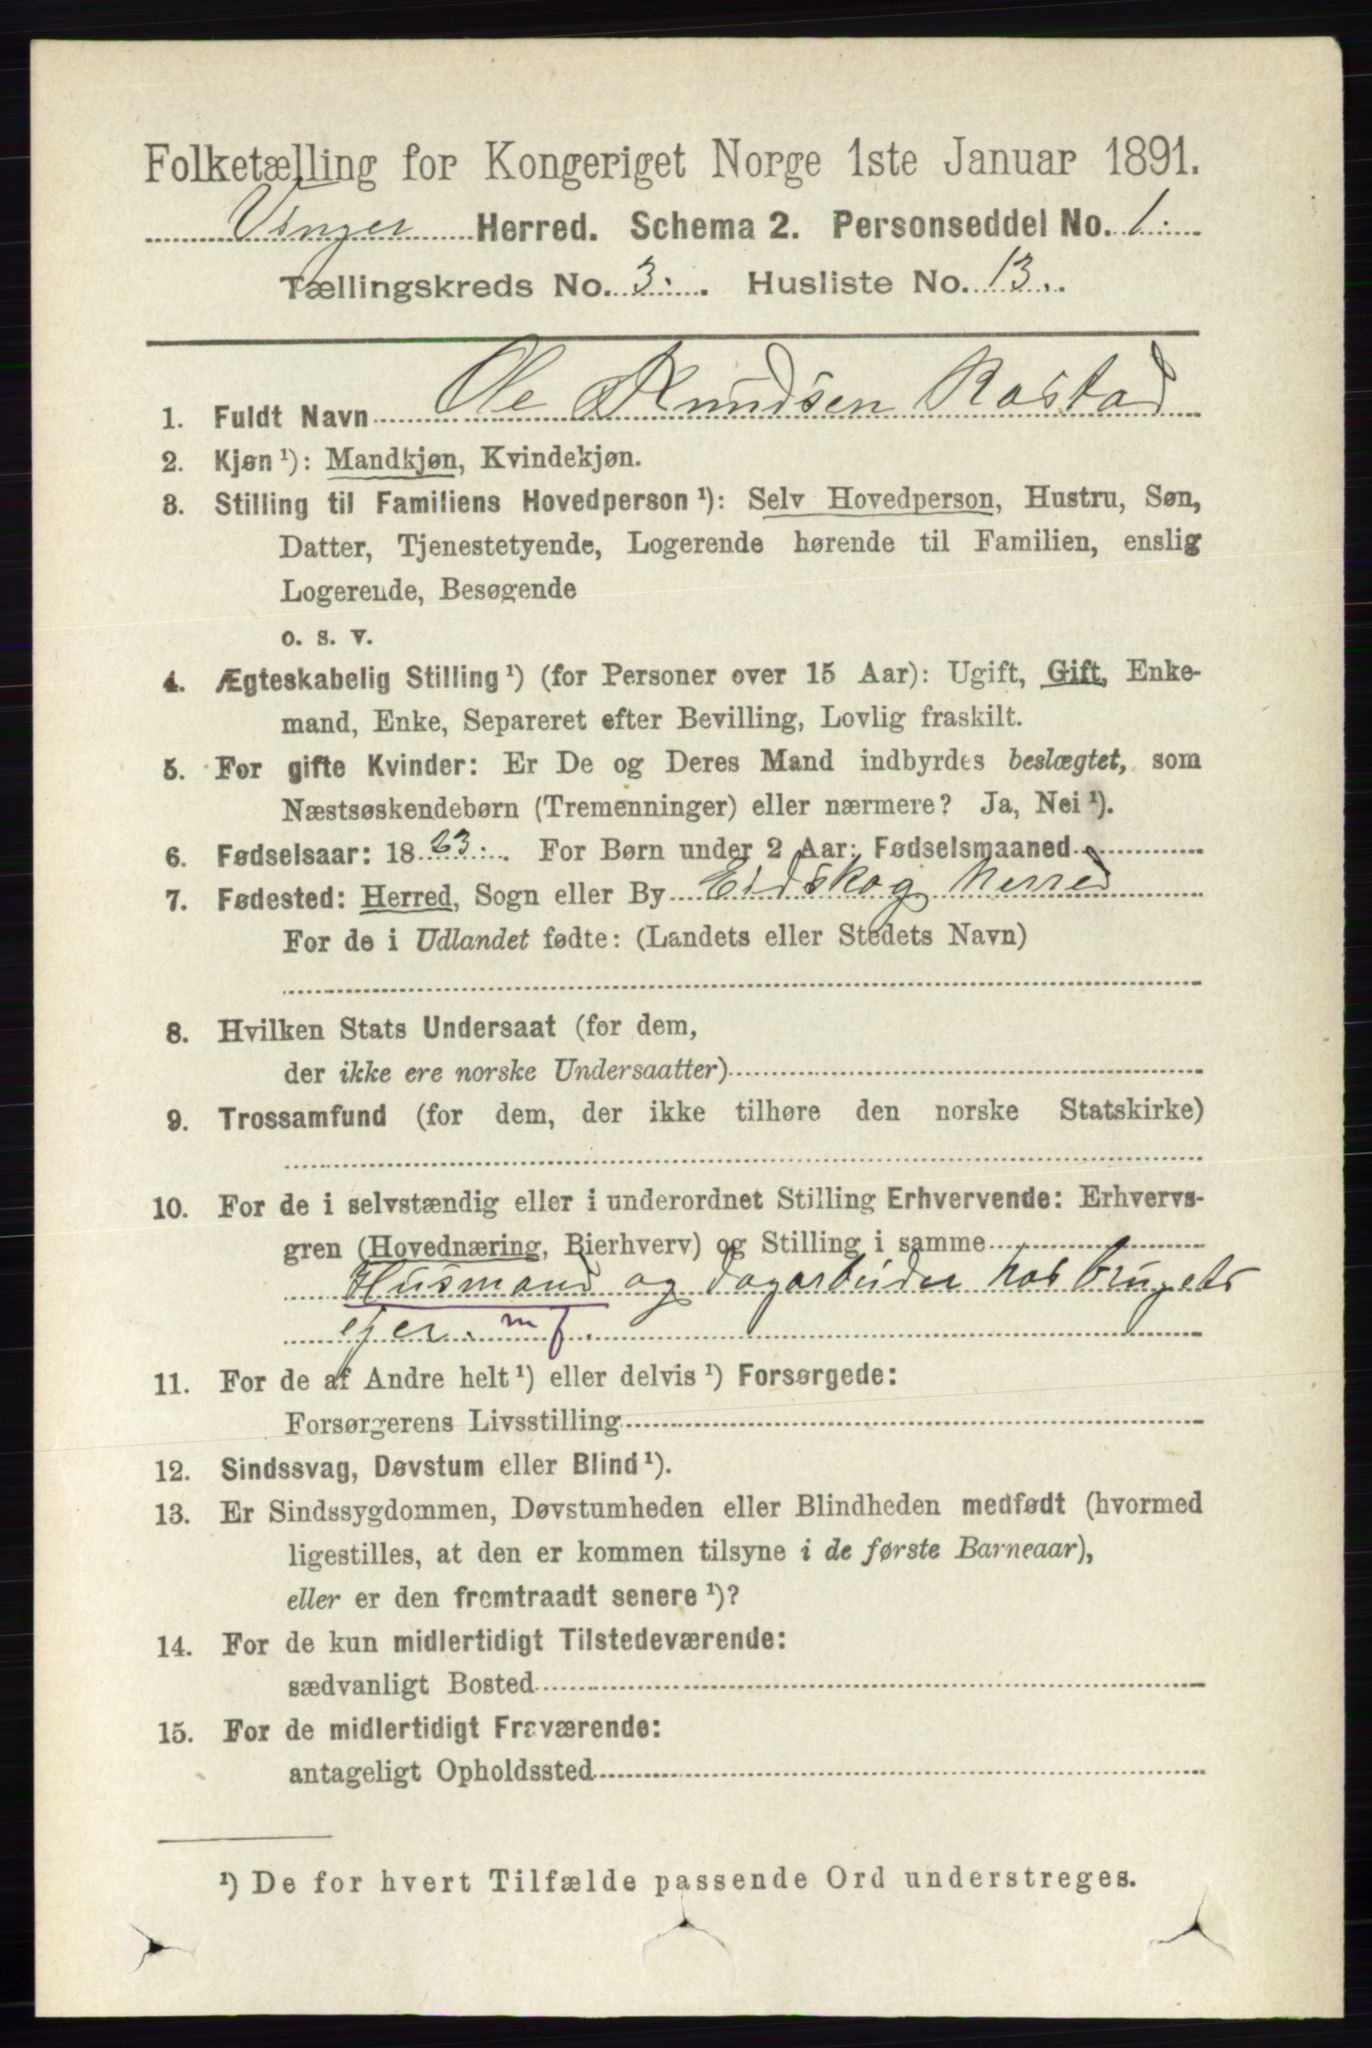 Folketælling for Kongeriget Norge 1ste Januar 1891.
Vinger Herred. Schema 2. Personseddel No. 1.
Tællingskreds No. 3. Husliste No. 13.
1. Fuldt Navn Ole Knudsen Rastad
2. Kjøn ¹): Mandkjøn, Kvindekjøn.
3. Stilling til Familiens Hovedperson ¹): Selv Hovedperson, Hustru, Søn,
Datter, Tjenestetyende, Logerende hørende til Familien, enslig
Logerende, Besøgende
o. s. v.
4. Ægteskabelig Stilling ¹) (for Personer over 15 Aar): Ugift, Gift, Enke-
mand, Enke, Separeret efter Bevilling, Lovlig fraskilt.
5. For gifte Kvinder: Er De og Deres Mand indbyrdes beslægtet, som
Næstsøskendebørn (Tremenninger) eller nærmere? Ja, Nei ¹).
6. Fødselsaar: 1823. For Børn under 2 Aar: Fødselsmaaned
7. Fødested: Herred, Sogn eller By Eidskog Herred
For de i Udlandet fødte: (Landets eller Stedets Navn)
8. Hvilken Stats Undersaat (for dem,
der ikke ere norske Undersaatter)
9. Trossamfund (for dem, der ikke tilhøre den norske Statskirke)
10. For de i selvstændig eller i underordnet Stilling Erhvervende: Erhvervs-
gren (Hovednæring, Bierhverv) og Stilling i samme
Husmand og dagarbeider hos brugets
ejer. mf.
11. For de af Andre helt ¹) eller delvis ¹) Forsørgede:
Forsørgerens Livsstilling
12. Sindssvag, Døvstum eller Blind ¹).
13. Er Sindssygdommen, Døvstumheden eller Blindheden medfødt (hvormed
ligestilles, at den er kommen tilsyne i de første Barneaar),
eller er den fremtraadt senere ¹)?
14. For de kun midlertidigt Tilstedeværende:
sædvanligt Bosted
15. For de midlertidigt Fraværende:
antageligt Opholdssted
¹) De for hvert Tilfælde passende Ord understreges.